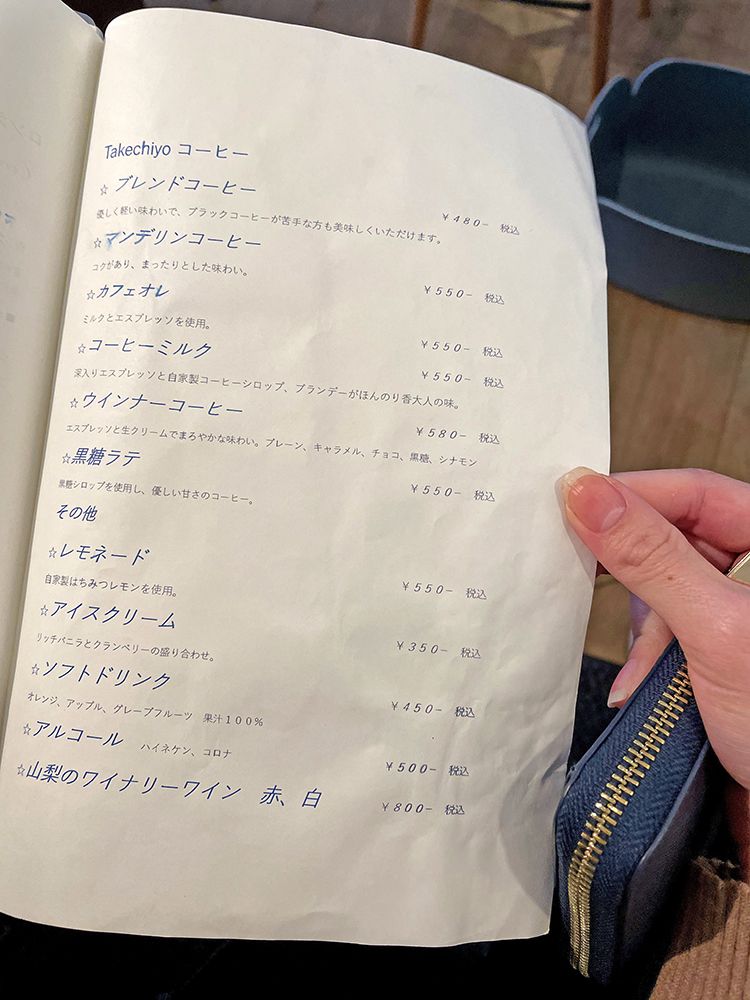 Takechiyo コーヒー
☆ ブレンドコーヒー
￥480- 税込
優しく軽い味わいで、ブラックコーヒーが苦手な方も美味しくいただけます。
☆マンデリンコーヒー
コクがあり、まったりとした味わい。
￥550- 税込
☆カフェオレ
ミルクとエスプレッソを使用。
￥550- 税込
☆コーヒーミルク
￥550- 税込
深入りエスプレッソと自家製コーヒーシロップ、ブランデーがほんのり香大人の味。
☆ウインナーコーヒー
￥580- 税込
エスプレッソと生クリームでまろやかな味わい。プレーン、キャラメル、チョコ、黒糖、シナモン
☆黒糖ラテ
￥550- 税込
黒糖シロップを使用し、優しい甘さのコーヒー。
その他
☆レモネード
￥550- 税込
自家製はちみつレモンを使用。
☆アイスクリーム
￥350- 税込
リッチバニラとクランベリーの盛り合わせ。
☆ソフトドリンク
￥450- 税込
オレンジ、アップル、グレープフルーツ 果汁１００％
☆アルコール ハイネケン、コロナ
￥500- 税込
☆山梨のワイナリーワイン 赤、白
￥800- 税込